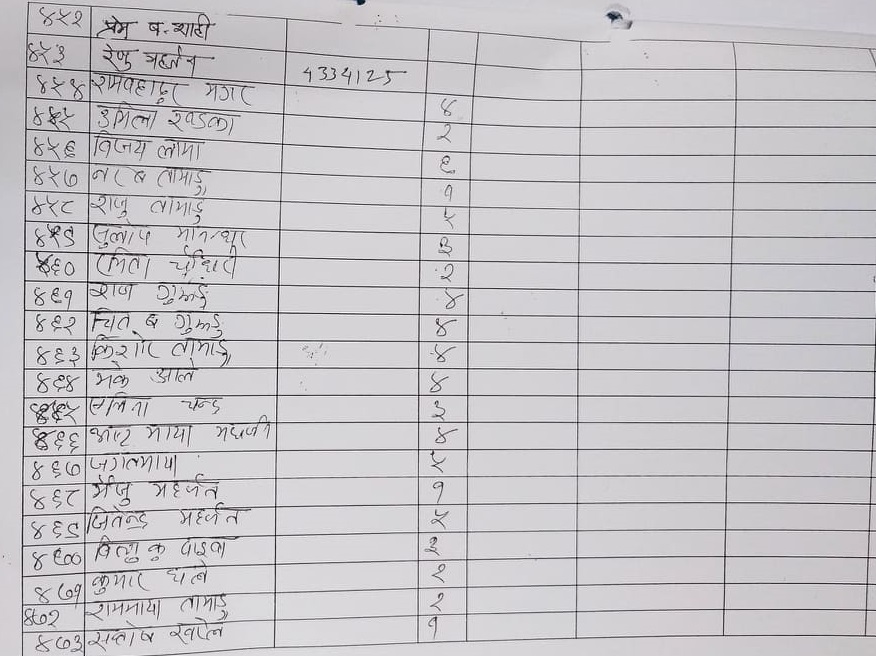 ४५२ प्रेम ब. शाही
४५३ रेजु महर्जन 4334125
४५४ रामबहादुर मगर ४
४५५ उर्मिला खड्का २
४५६ विजय लामा ६
४५७ नर ब तामाङ १
४५८ राजु तामाङ ५
४५९ मानन्धर ३
४६० रमिता चौधरी २
४६१ राज गुरुङ ४
४६२ चित्र ब गुरुङ ४
४६३ किशोर तामाङ ४
४६४ आले ४
४६५ चन्द ३
४६६ माया महर्जन ४
४६७ जगतमाया ५
४६८ मैजु महर्जन १
४६९ जितेन्द्र महर्जन ५
४७० विष्णु कु ३
४७१ कुमार २
४७२ राममाया तामाङ २
४७३ सन्तोष १